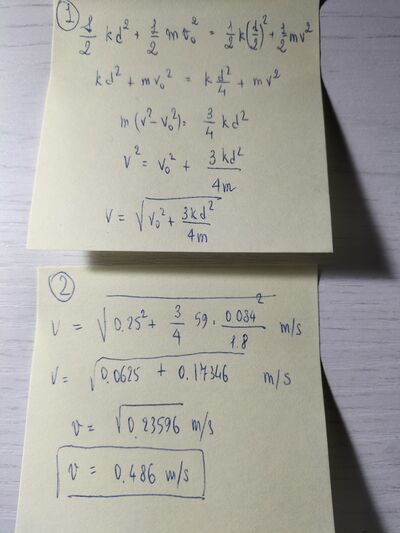 1
1/2 kd² + 1/2 m v₀² = 1/2 k(d/2)² + 1/2 mv²
kd² + mv₀² = k d²/4 + mv²
m(v²-v₀²) = 3/4 kd²
v² = v₀² + 3kd²/4m
v = √(v₀² + 3kd²/4m)
2
v = √(0.25² + 3/4 59 · 0.034²/1.8) m/s
v = √(0.0625 + 0.17346) m/s
v = √0.23596 m/s
v = 0.486 m/s